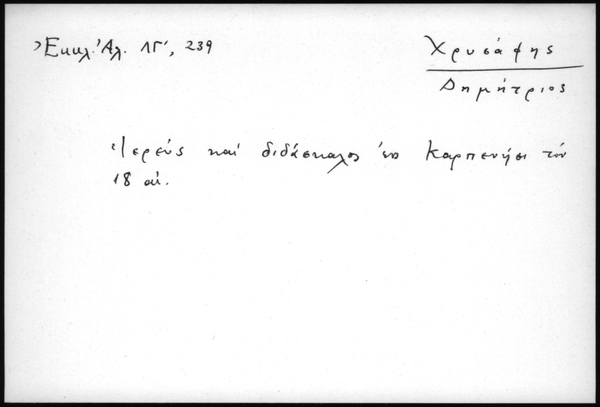 Ἐκκλ. Ἀλ. ΛΓ', 239
Χρυσάφης
Δημήτριος
Ἱερεύς καί διδάσκαλος ἐν Καρπενήσι τόν
18 αἰ.